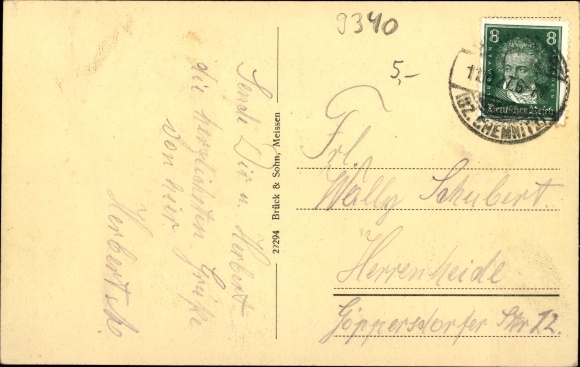 9340
5,-
8 8
Deutsches Reich
(BZ. CHEMNITZ)
Sende Dir u. Herbert
die herzlichsten Grüße
von hier
Herbert
22294 Brück & Sohn, Meissen
Frl.
Wally Schubert
Herrenheide
Göppersdorfer Str 12.